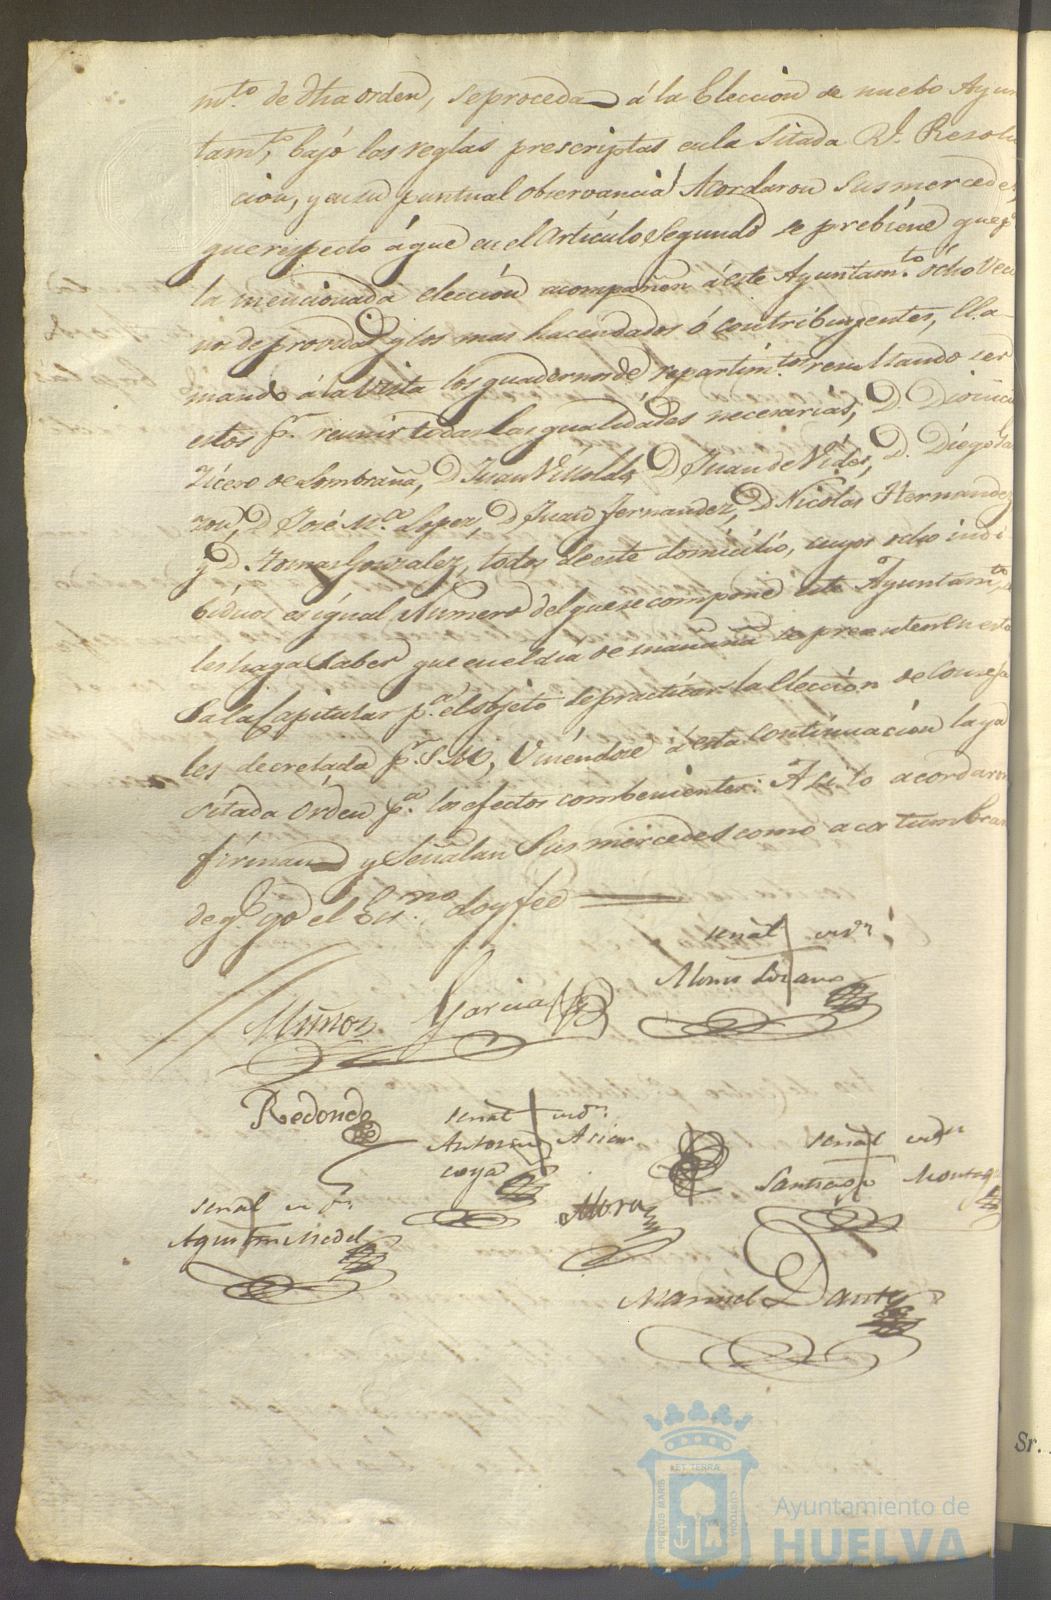 m.to de dha orden, se proceda á la Eleccion de nuebo Ayun
tam.to, bajó las reglas prescriptas en la Sitada R.l Resolu
cion, y en su puntual observancia Acordaron Sus mercedes,
que respecto á que en el Artículo Segundo se prebiene que p.a
la mencionada elección acompañen á este Ayuntam.to ócho Veci
nos de provida.d y los mas hacendados ó contribuyentes, lla-
mando á la Vista los quadernos de repartim.tos resultando ser
estos p.r reunir todas las qualidades necesarias, D. Dionicio
de Sombraña, D Juan D Juan de Vides, D. Diego
D José M.a Lopez, D Juan Fernandez, D Nicolas Hernandez
y D. Tomas Gonzalez, todos de este domicilio, cuyos ocho indi
biduos es igual Numero del que se compone este Ayuntam.to, se
les haga Saber que en el día de mañana se presenten en esta
Sala Capitular p.a el objeto de practicar la Elección de Conceja
les decretada p.r S.M, Uniéndose á esta continuación la ya
sitada Orden p.a los efectos combenientes: Asi lo acordaron
firman y Señalan Sus mercedes como acostumbran
de q.e yo el Es.no doy fee
señal + un d.r
Alonso Lozano
Muñoz Garcia
Redondo
señal + un d.r
Antonio
señal + un d.r
Santiago
señal + un d.r
Agustin Medel
Mora
Manuel Dante
PORTUS MARIS ET TERRÆ CUSTODIA
Ayuntamiento de
HUELVA
Sr.